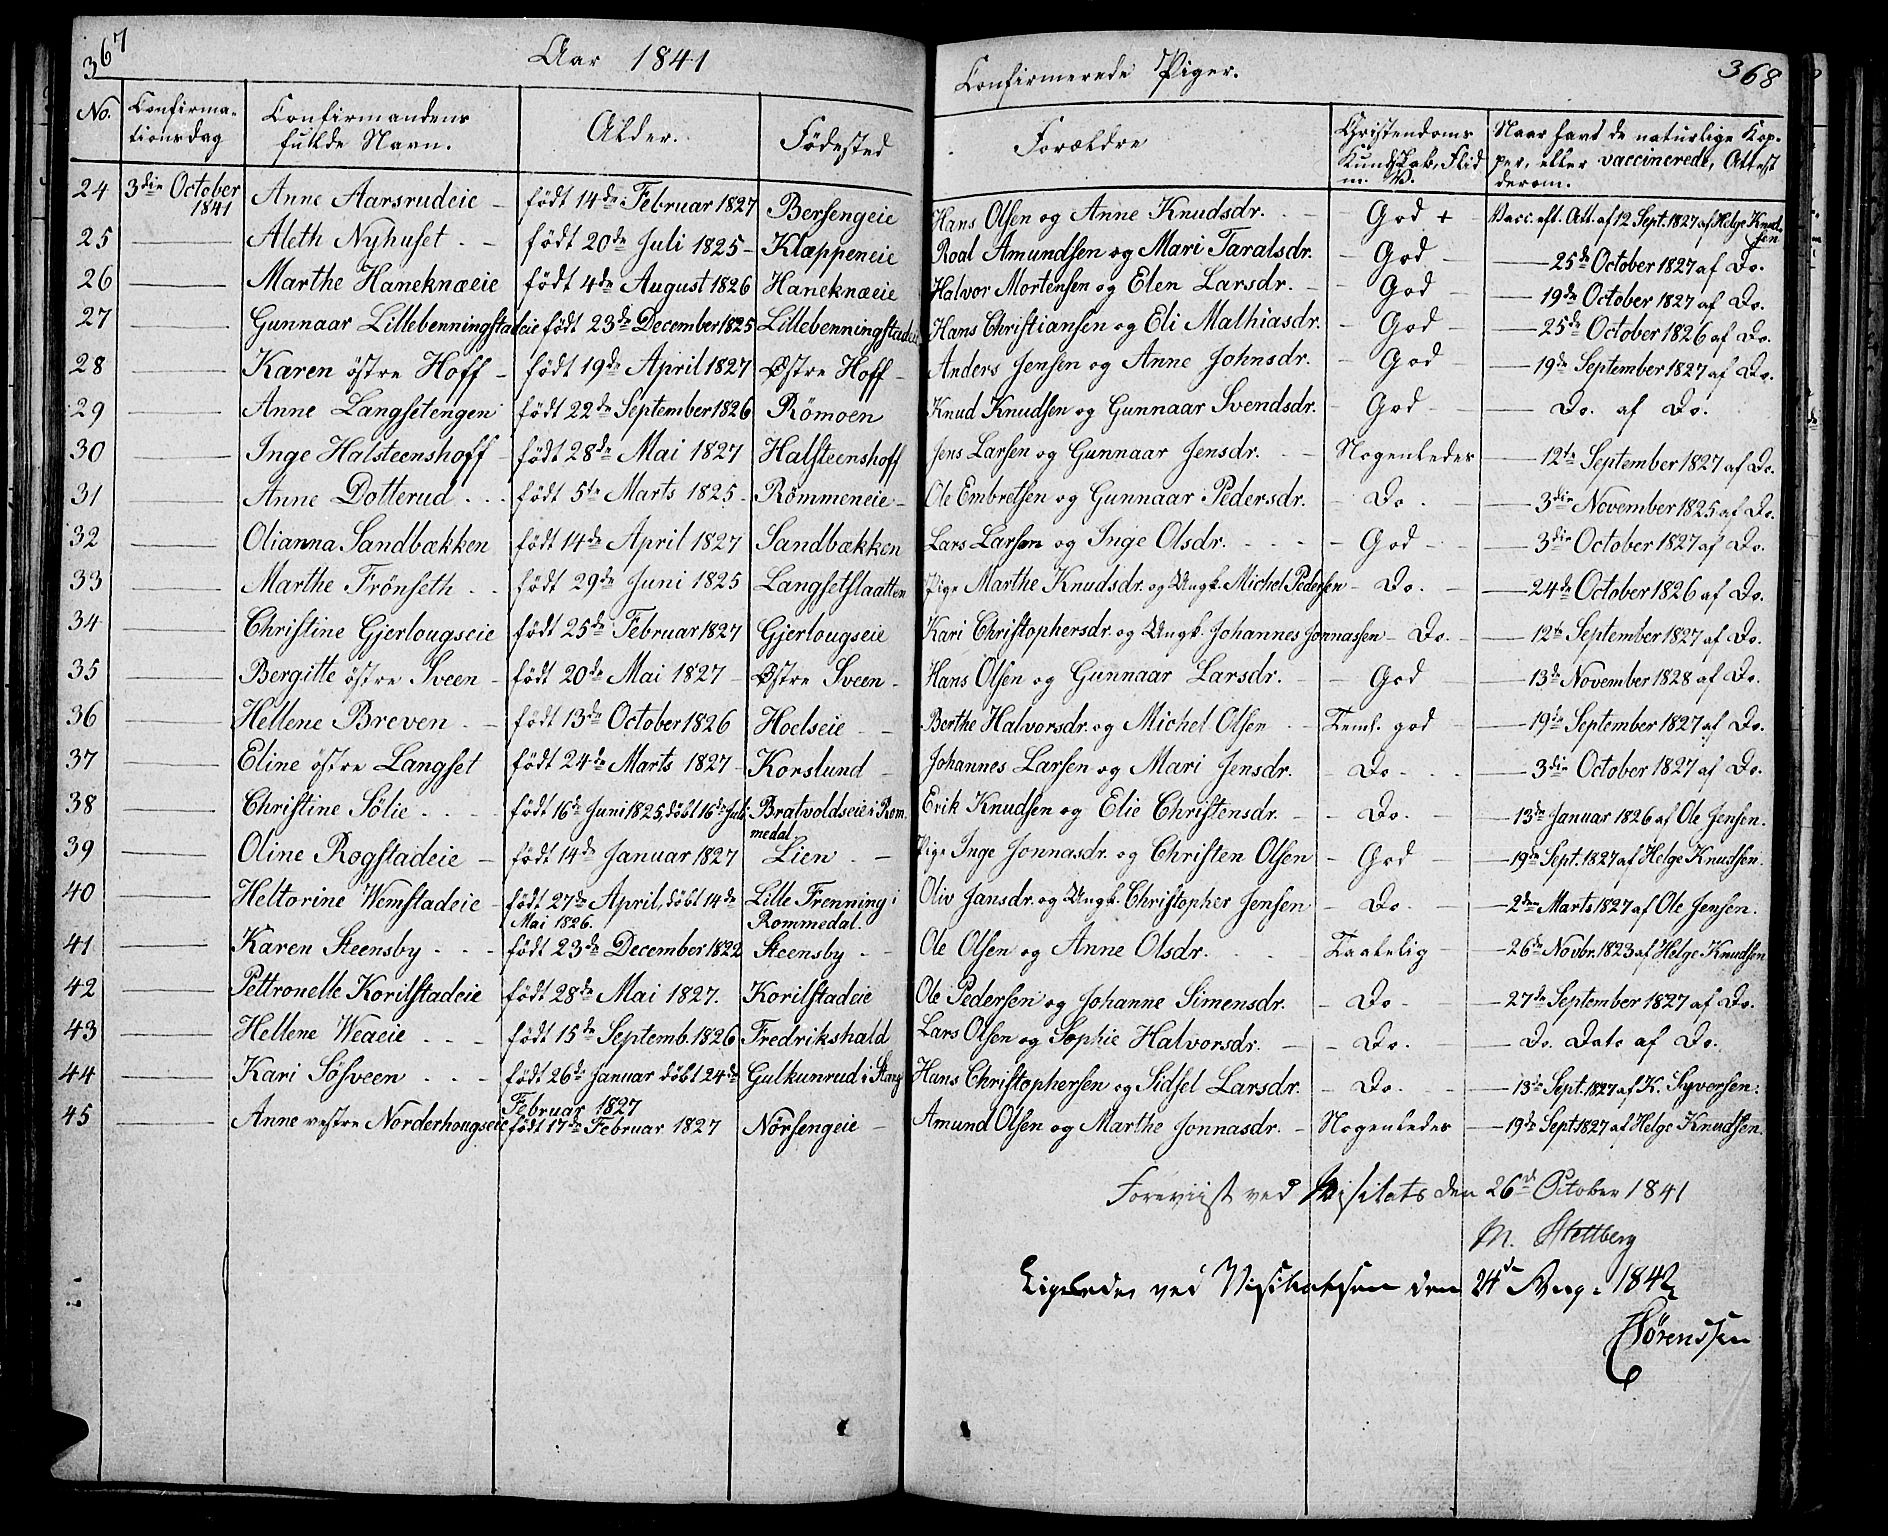 367
Aar 1841
No. Confirma-
tionsdag
Confirmandens
fulde Navn.
Alder.
Födested
24 3die October
1841 Anne Aarsrudeie - födt 14de Februar 1827 Bersengeie
25 Aleth Nyhuset - födt 20de Juli 1825 - Klæppeneie
26 Marthe Haneknæeie födt 4de August 1826 Haneknæeie
27 Gunnaar Lillebenningstadeie födt 23de December 1825 Lillebenningstadeie
28 Karen östre Hoff - födt 19de April 1827 Østre Hoff -
29 Anne Langsetengen födt 22de September 1826 Römoen
30 Inge Halsteenshoff - födt 28de Mai 1827 Halsteenshoff
31 Anne Dotterud - födt 5te Marts 1825 - Römmeneie -
32 Olianna Sandbækken födt 14de April 1827 Sandbækken
33 Marthe Frönseth - födt 29de Juni 1825 Langsetslaatten
34 Christine Gjerlougseie födt 25de Februar 1827 Gjerlougseie
35 Bergitte östre Sveen - födt 20de Mai 1827 - Østre Sveen -
36 Hellene Breven - födt 13de October 1826 Hoelseie -
37 Eline östre Langset födt 24de Marts 1827 - Korslund -
38 Christine Sölie - födt 16de Juni 1825, döbt 16de Juli Bratvoldseie i Rom-
medal.
39 Oline Rogstadeie - födt 14de Januar 1827 Lien -
40 Heltorine Wemstadeie - födt 27de April, döbt 14de Lille Frenning i
Mai 1826. Rommedal.
41 Karen Steensby - födt 23de December 1822 Steensby -
42 Pettronelle Korilstadeie födt 28de Mai 1827. Korilstadeie
43 Hellene Weaeie - födt 15de Septemb. 1826 Fredrikshald
44 Kari Sösveen - födt 26de Januar döbt 24de Gulkunrud i Stang
Februar 1827
45 Anne vestre Norderhougseie födt 17de Februar 1827 Nörsengeie -
368
Confirmerede Piger.
Forældre
Christendoms
Kundskab, Flid
Naar havt de naturlige Kop-
per, eller vaccinerede, Attest
derom.
Hans Olsen og Anne Knudsdr. - God + Vacc. eft. Att. af 12 Sept. 1827 af Helge Knud-
sen
Roal Amundsen og Mari Taralsdr. - God - 25de October 1827 af Do.
Halvor Mortensen og Elen Larsdr. - God - 19de October 1827 af Do.
Hans Christiansen og Eli Mathiasdr. - God - 25de October 1826 af Do.
Anders Jensen og Anne Johnsdr. - God - 19de September 1827 af Do.
Knud Knudsen og Gunnaar Svendsdr. - God - Do. af Do.
Jens Larsen og Gunnaar Jensdr. - Nogenledes - 12te September 1827 af Do.
Ole Embretsen og Gunnaar Pedersdr. - Do. - 3die November 1825 af Do.
Lars Larsen og Inge Olsdr. - God - 3die October 1827 af Do.
Pige Marthe Knudsdr. og Ungk. Michel Pedersen - Do. - 24de October 1826 af Do.
Kari Christophersdr. og Ungk. Johannes Jonnassen - Do. - 12te September 1827 af Do.
Hans Olsen og Gunnaar Larsdr. - God - 13de November 1828 af Do.
Berthe Halvorsdr. og Michel Olsen - Teml. god - 19de September 1827 af Do.
Johannes Larsen og Mari Jensdr. - Do - 3die October 1827 af Do.
Erik Knudsen og Elie Christensdr. - Do. - 13de Januar 1826 af Ole Jensen.
Pige Inge Jonnasdr. og Christen Olsen - God - 19de Sept. 1827 af Helge Knudsen.
Oliv Jansdr. og Ungk. Christopher Jensen - Do. - 2den Marts 1827 af Ole Jensen.
Ole Olsen og Anne Olsdr. - Taalelig - 26de Novbr. 1823 af Helge Knudsen
Ole Pedersen og Johanne Simensdr. - Do - 27de September 1827 af Do.
Lars Olsen og Sophie Halvorsdr. - Do. - Do. Dato af Do.
Hans Christophersen og Sidsel Larsdr. - Do. - 13de Sept. 1827 af K. Syversen.
Amund Olsen og Marthe Jonnasdr. - Nogenledes - 19de Sept. 1827 af Helge Knudsen.
Foreviist ved Visitats den 26de October 1841
Ligeledes ved Visitatsen den 24de Aug. 1842
Sörenssen